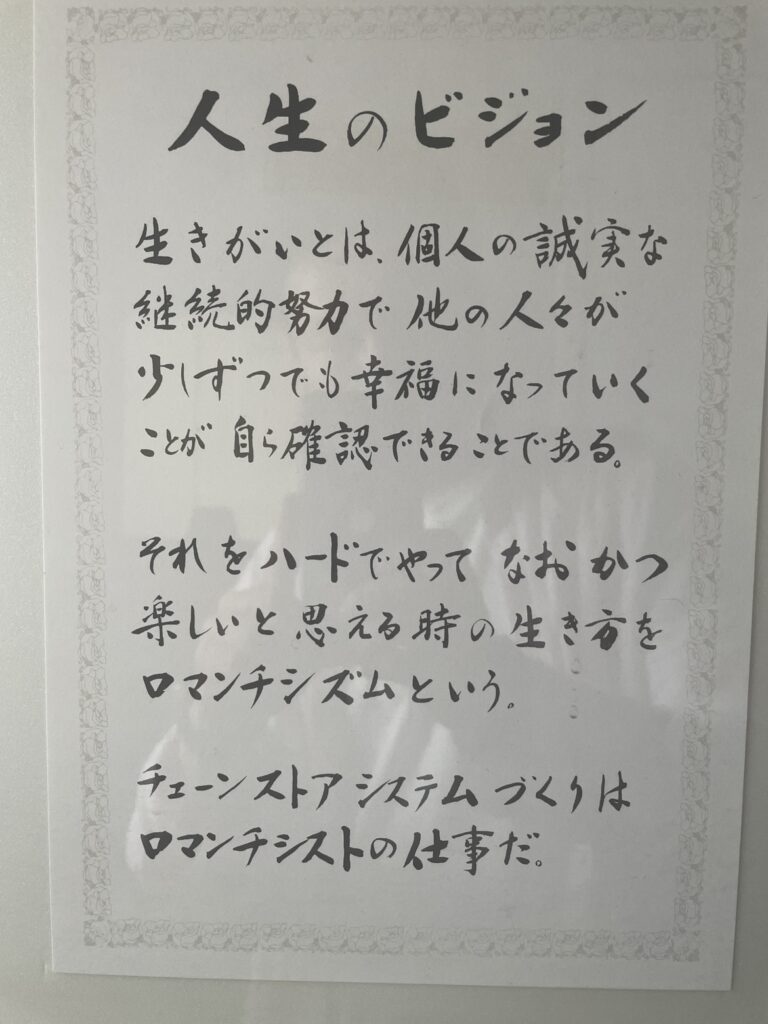 人生のビジョン
生きがいとは、個人の誠実な
継続的努力で他の人々が
少しずつでも幸福になっていく
ことが自ら確認できることである。
それをハードでやって なおかつ
楽しいと思える時の生き方を
ロマンチシズムという。
チェーンストアシステムづくりは
ロマンチシストの仕事だ。